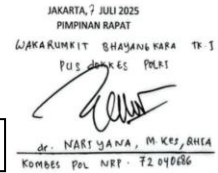 JAKARTA, 7 JULI 2025
PIMPINAN RAPAT
WAKARUMKIT BHAYANGKARA TK. I
PUSDOKKES POLRI
dr. NARIYANA, M. Kes, QHIA
KOMBES POL NRP. 72040686